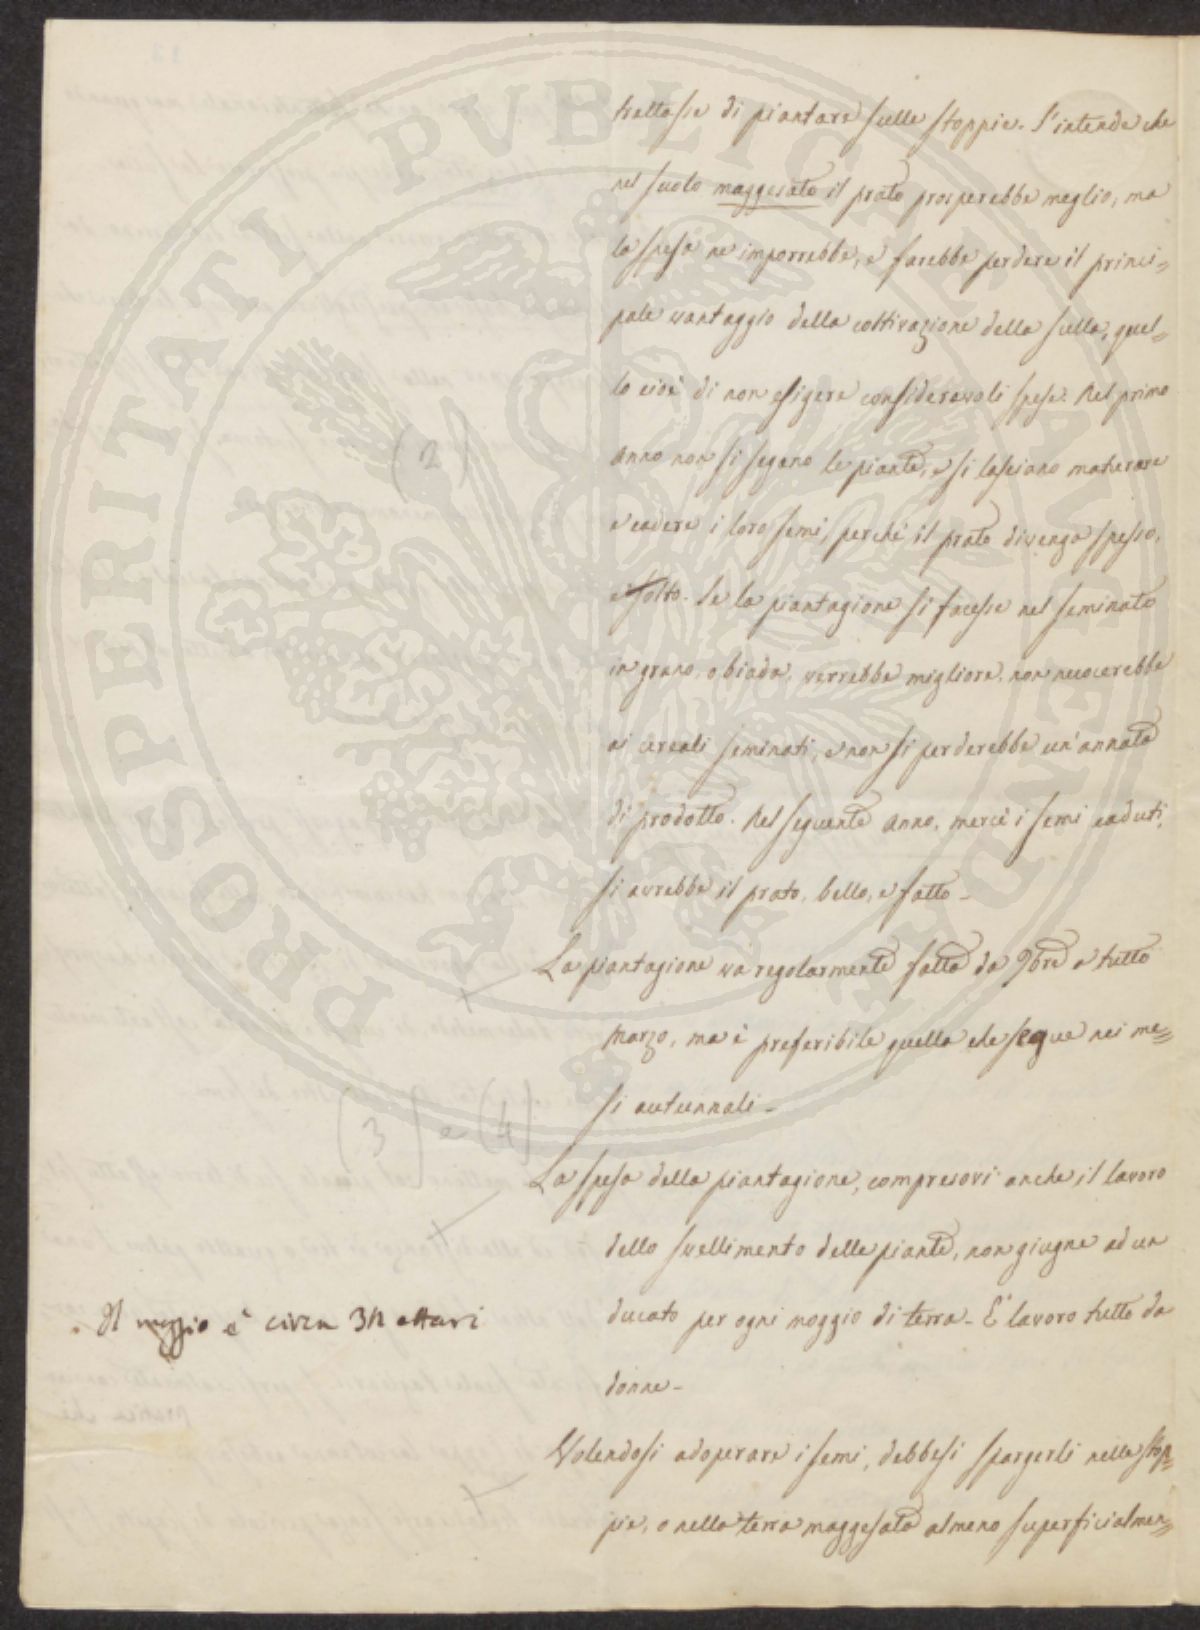 trattasse di piantare sulle stoppie. S'intende che
nel suolo maggesato il prato prosperebbe meglio, ma
la spesa ne imporrebbe, e farebbe perdere il princi=
pale vantaggio della coltivazione della sulla, quel=
lo cioè di non esigere considerevoli spese. Nel primo
(2)
anno non si segano le piante, e si lasciano maturare
e cadere i loro semi, perchè il prato divenga spesso,
e folto. Se la piantagione si facesse nel seminato
in grano, o biada, verrebbe migliore, non nuocerebbe
ai cereali seminati, e non si perderebbe un'annata
di prodotto. Nel seguente anno, mercè i semi caduti,
si avrebbe il prato, bello, e fatto -
La piantagione va regolarmente fatta da 9bre a tutto
Marzo, ma è preferibile quella che segue nei me=
si autunnali -
(3) e (4)
La spesa della piantagione, compresovi anche il lavoro
dello svellimento delle piante, non giugne ad un
ducato per ogni moggio di terra - E' lavoro tutto da
Il moggio è circa ettari
donne -
Volendosi adoperare i semi, debbesi spargerli nelle stop=
pie, o nella terra maggesata almeno superficialmen=
PROSPERITATI PVBLICAE AVGENDAE